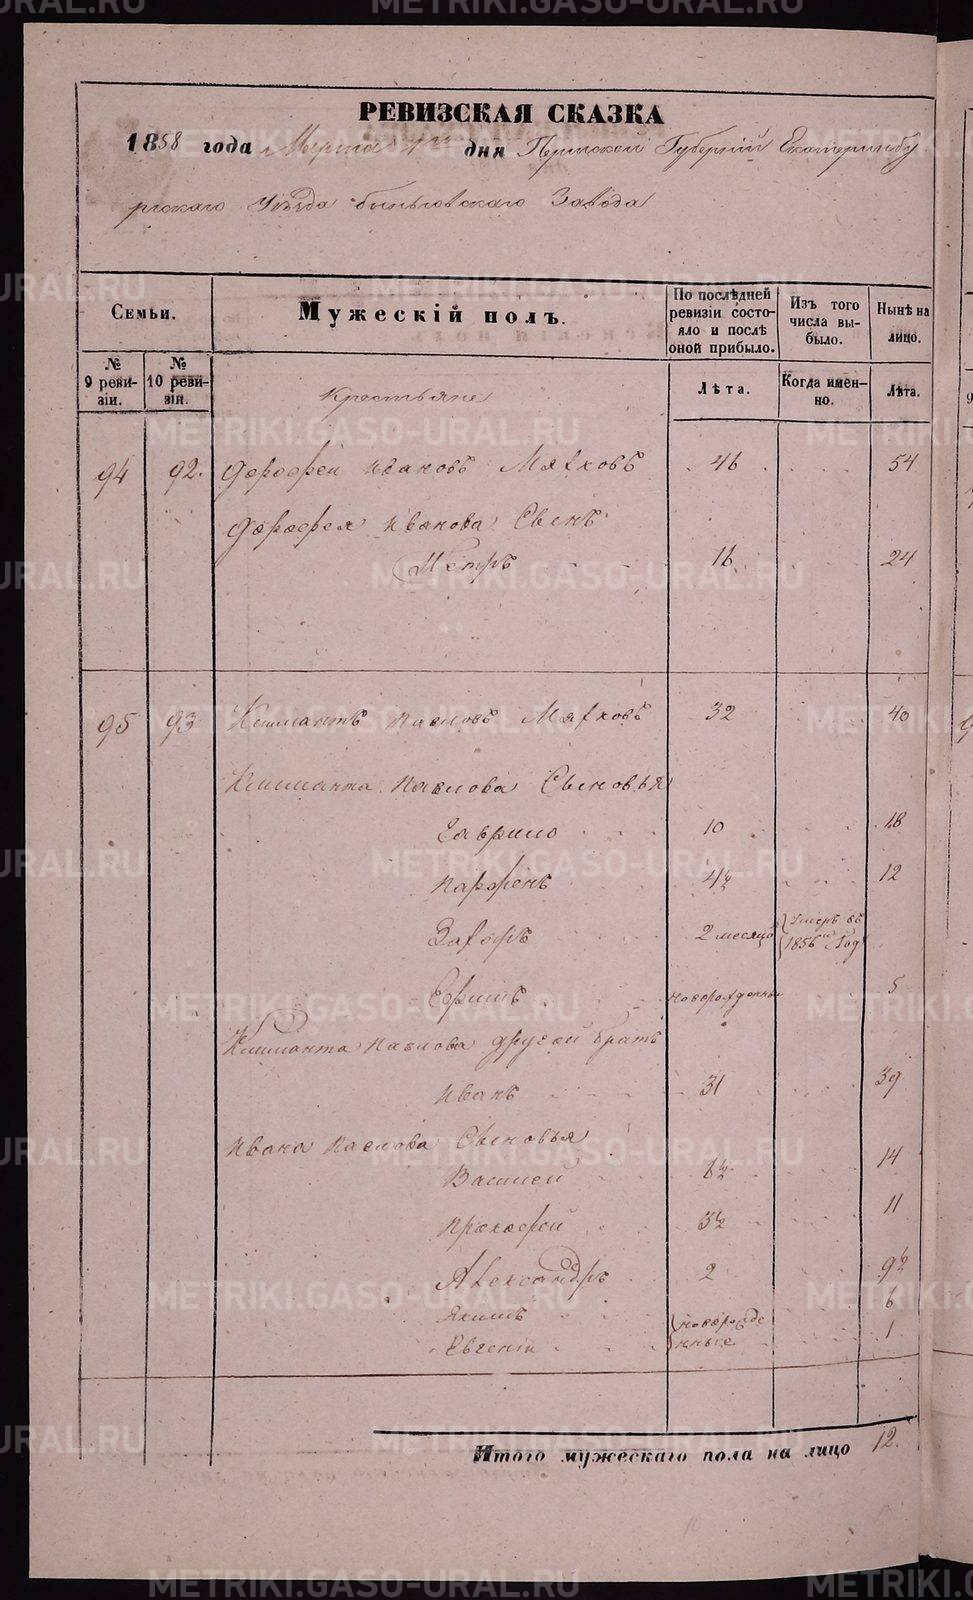 РЕВИЗСКАЯ СКАЗКА
1858 года Марта дня Пермской Губерніи Екатеринбу
ргскаго Уѣзда Завода
Семьи.
Мужескій полъ.
По послѣдней ревизіи состояло и послѣ оной прибыло.
Изъ того числа выбыло.
Нынѣ на лицо.
№ 9 ревизіи.
№ 10 ревизія.
Лѣта.
Когда именно.
Лѣта.
Крестьяне
94 92. Дорофей Ивановъ Мяхковъ 46 54
Дорофея Иванова Сынъ
Петръ 16 24
95 93 Климантъ Павловъ Мяхковъ 32 40
Климанта Павлова Сыновья
Гаврило 10 18
Парфенъ 4½ 12
Захаръ 2 месяцо Умеръ въ 1856 Год
Ефимъ новорожденный 5
Климанта Павлова другой братъ
Иванъ 31 39
Ивана Павлова Сыновья
Василей 6½ 14
Прокофей 3½ 11
Александръ 2 9½
Якимъ новорожде 6
Евгеній нные 1
Итого мужескаго пола на лицо 12.
METRIKI.GASO-URAL.RU